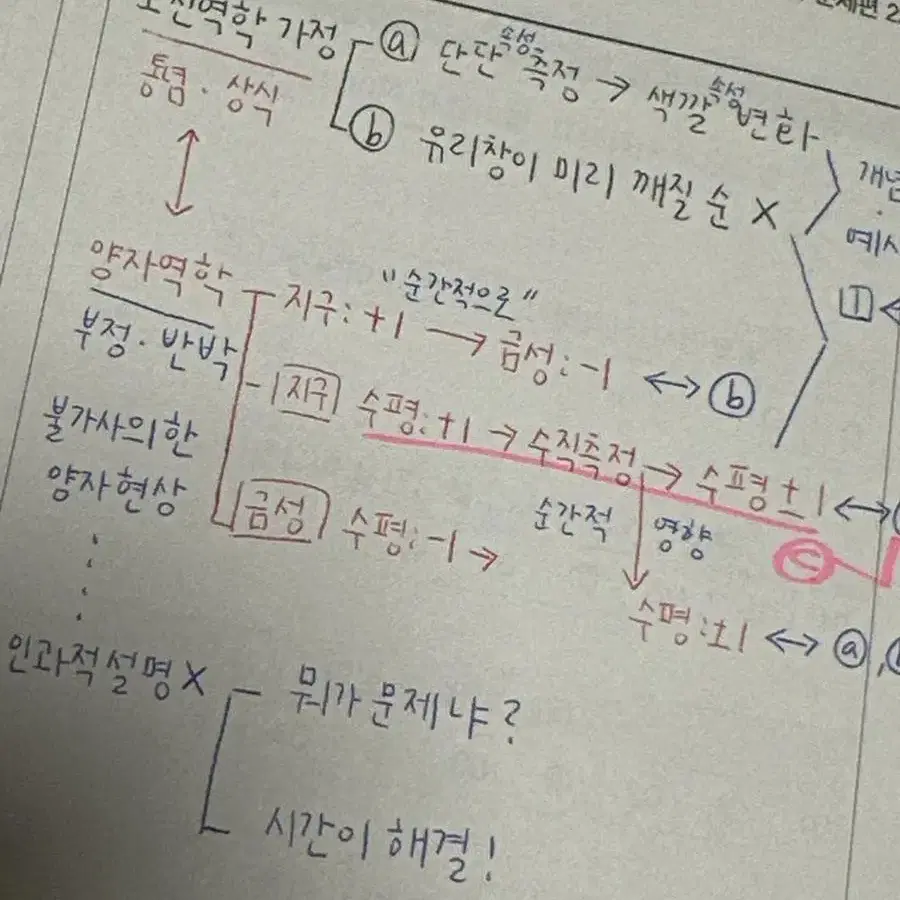 고전역학 가정 ⓐ 단단 속성 측정 → 색깔 속성 변화
통념·상식
ⓑ 유리창이 미리 깨질 순 X
개념
·
예시
양자역학 지구: +1 "순간적으로" → 금성: -1 ↔ ⓑ
1
부정·반박
지구 수평: +1 → 수직측정 → 수평 ±1 ↔
불가사의한
양자현상
금성 수평: -1 →
순간적 영향
ⓒ
수평: ±1 ↔ ⓐ,
인과적설명 X
뭐가 문제냐?
시간이 해결!